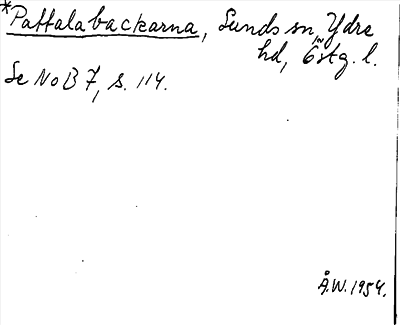 *Pattalabackarna, Sunds sn, Ydre
hd, Östg. l.
Se NoB 7, s. 114.
Å.W. 1954.